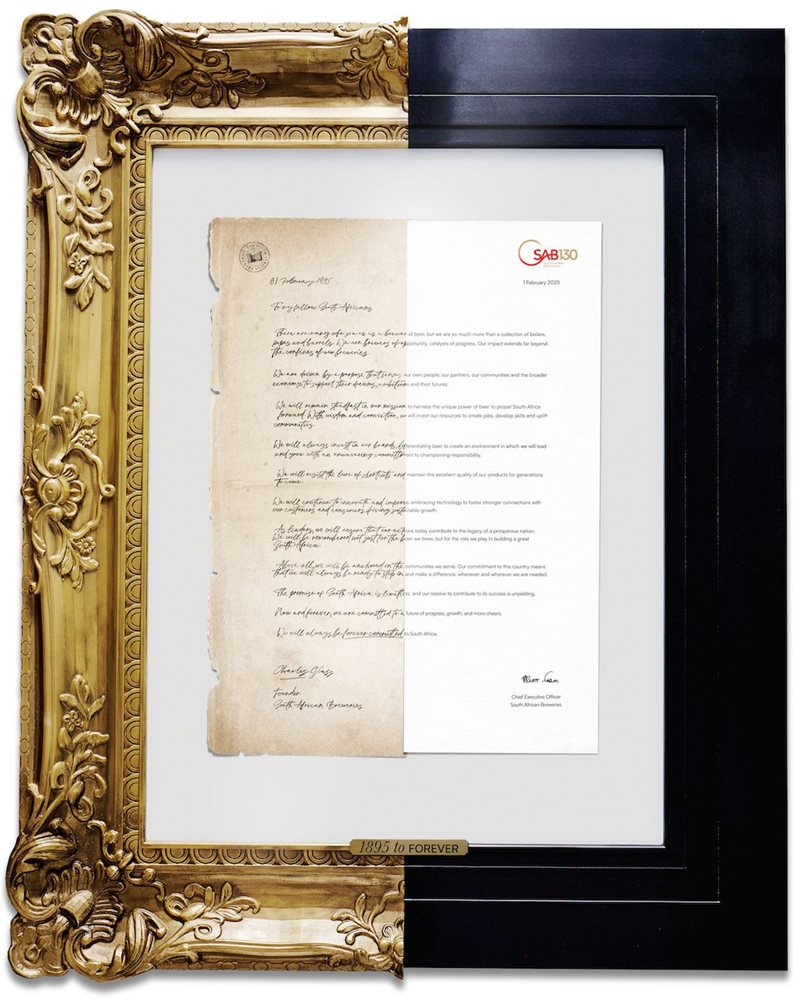 SAB130
01 February 1895
1 February 2025
To my fellow South Africans
There are many who see us as a brewer of beer, but we are so much more than a collection of boilers,
pipes and barrels. We are brewers of opportunity, catalysts of progress. Our impact extends far beyond
the confines of our breweries.
We are driven by a purpose that serves our own people, our partners, our communities and the broader
economy, to support their dreams, ambitions and their futures.
We will remain steadfast in our mission to harness the unique power of beer to propel South Africa
forward. With wisdom and conviction, we will invest our resources to create jobs, develop skills and uplift
communities.
We will always invest in our brands, differentiating beer to create an environment in which we will lead
and grow with an unwavering commitment to championing responsibility.
We will resist the lure of shortcuts and maintain the excellent quality of our products for generations
to come.
We will continue to innovate and improve, embracing technology to foster stronger connections with
our customers and consumers driving sustainable growth.
As leaders, we will ensure that our actions today contribute to the legacy of a prosperous nation.
We will be remembered not just for the beer we brew, but for the role we play in building a great
South Africa.
Above all, we will be anchored in the communities we serve. Our commitment to this country means
that we will always be ready to step in and make a difference, whenever and wherever we are needed.
The promise of South Africa is limitless, and our resolve to contribute to its success is unyielding.
Now and forever, we are committed to a future of progress, growth, and more cheers.
We will always be forever committed to South Africa.
Charles Glass
Founder
South African Breweries
Chief Executive Officer
South African Breweries
1895 to FOREVER